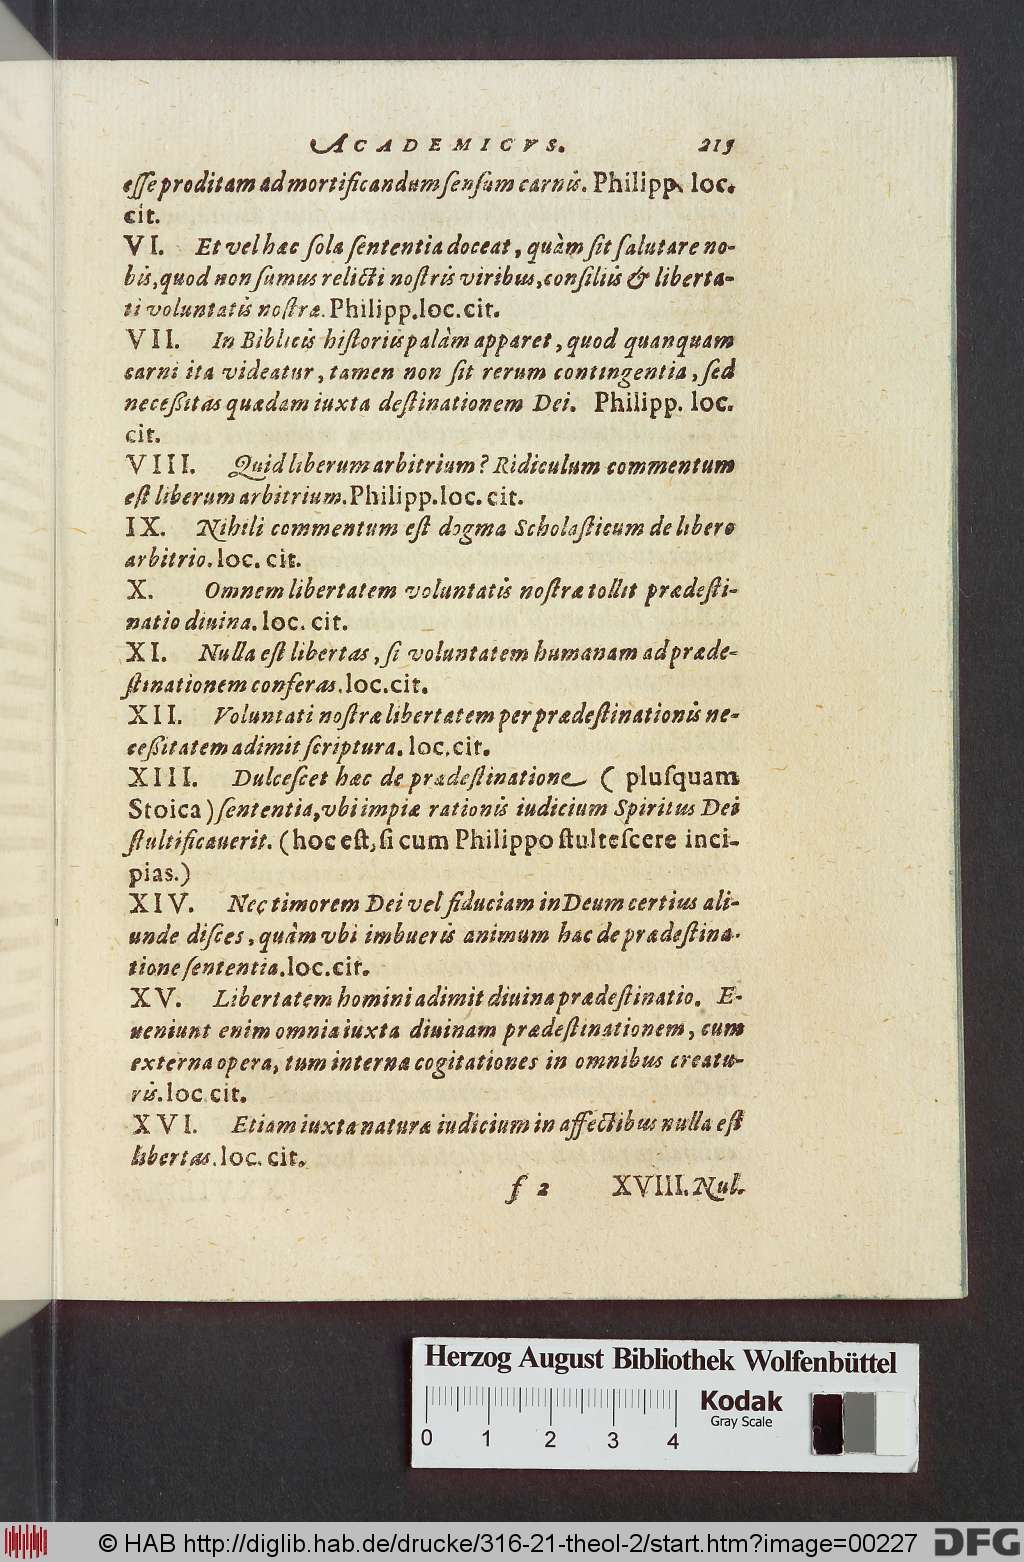 ACADEMICVS. 215
eſſe proditam ad mortificandum ſenſum carnis. Philipp. loc.
cit.
VI. Et vel hæc ſola ſententia doceat, quàm ſit ſalutare no-
bis, quod non ſumus relicti noſtris viribus, conſiliis & liberta-
ti voluntatis noſtræ. Philipp. loc. cit.
VII. In Biblicis hiſtoriis palàm apparet, quod quanquam
carni ita videatur, tamen non ſit rerum contingentia, ſed
neceßitas quædam iuxta deſtinationem Dei. Philipp. loc.
cit.
VIII. Quid liberum arbitrium? Ridiculum commentum
eſt liberum arbitrium. Philipp. loc. cit.
IX. Nihili commentum eſt dogma Scholaſticum de libero
arbitrio. loc. cit.
X. Omnem libertatem voluntatis noſtræ tollit prædeſti-
natio diuina. loc. cit.
XI. Nulla eſt libertas, ſi voluntatem humanam ad præde-
ſtinationem conferas. loc. cit.
XII. Voluntati noſtræ libertatem per prædeſtinationis ne-
ceßitatem adimit ſcriptura. loc. cit.
XIII. Dulceſcet hæc de prædeſtinatione ( pluſquam
Stoica) ſententia, vbi impiæ rationis iudicium Spiritus Dei
ſtultificauerit. (hoc eſt, ſi cum Philippo ſtulteſcere inci-
pias.)
XIV. Nec timorem Dei vel fiduciam in Deum certius ali-
unde diſces, quàm vbi imbueris animum hac de prædeſtina-
tione ſententia. loc. cit.
XV. Libertatem homini adimit diuina prædeſtinatio. E-
ueniunt enim omnia iuxta diuinam prædeſtinationem, cum
externa opera, tum internæ cogitationes in omnibus creatu-
ris. loc. cit.
XVI. Etiam iuxta naturæ iudicium in affectibus nulla eſt
libertas. loc. cit.
f 2 XVIII. Nul-
Herzog August Bibliothek Wolfenbüttel
0 1 2 3 4
Kodak
Gray Scale
© HAB http://diglib.hab.de/drucke/316-21-theol-2/start.htm?image=00227
DFG